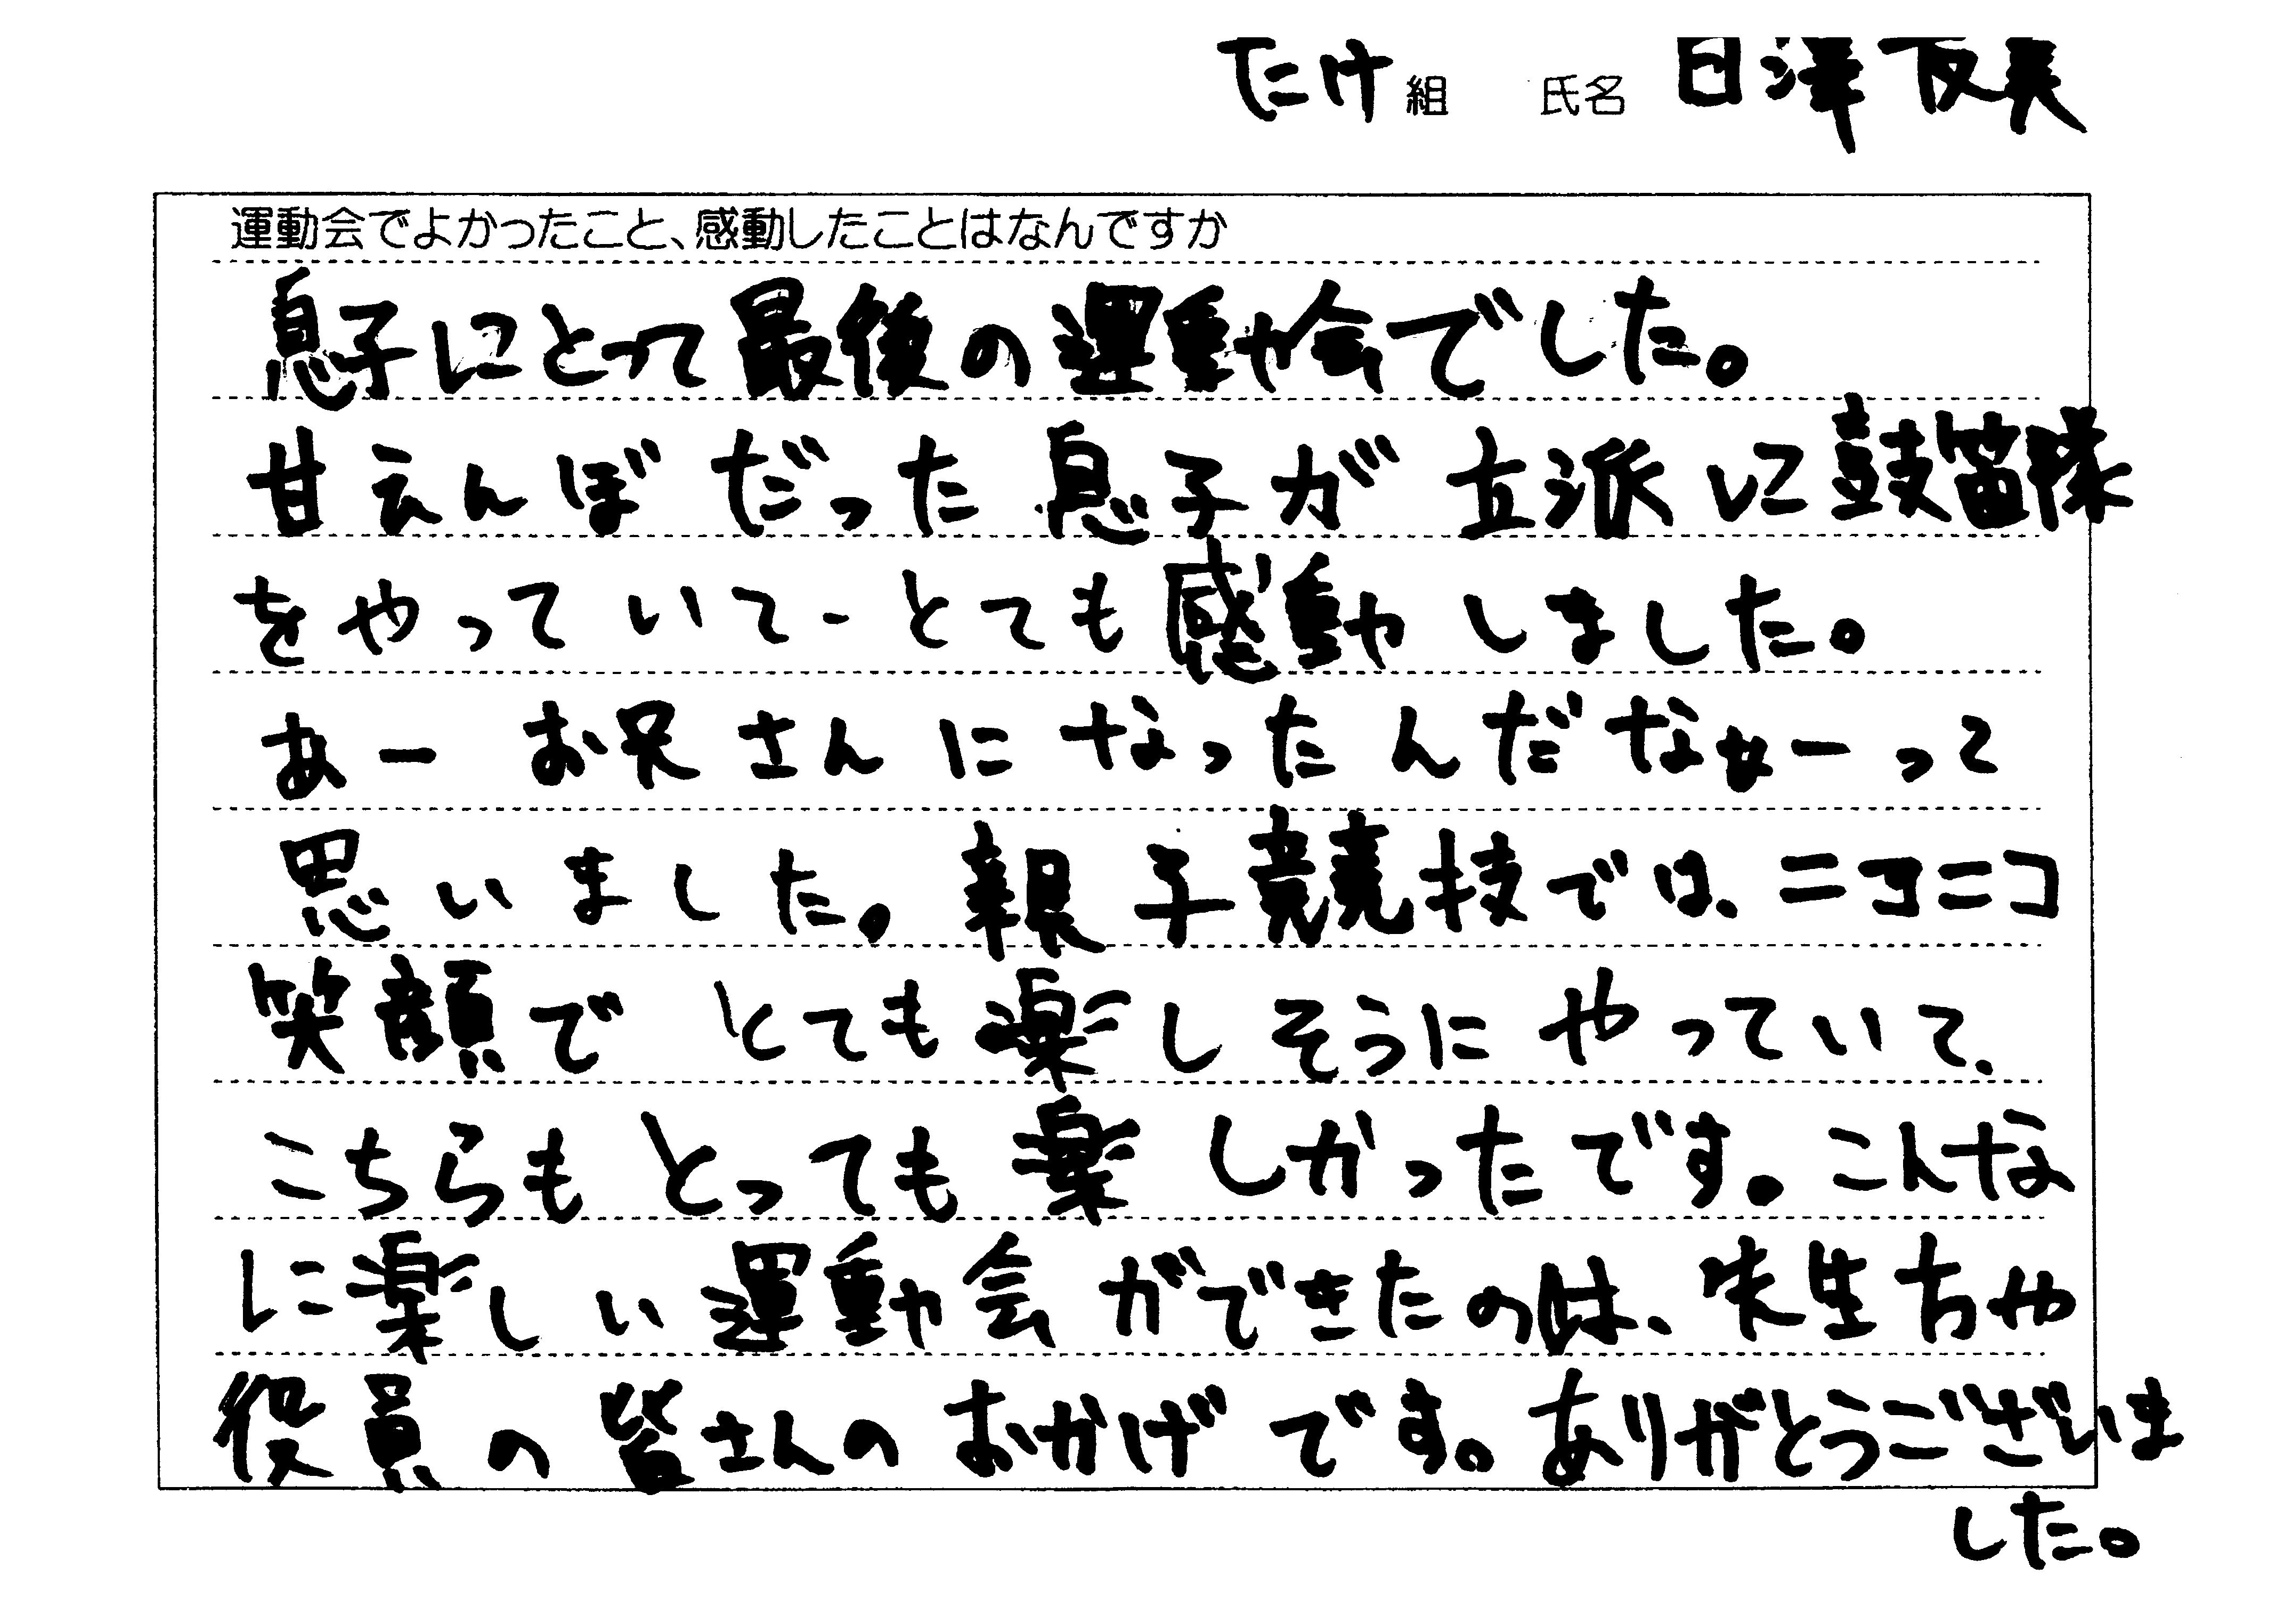 たけ組 氏名
運動会でよかったこと、感動したことはなんですか
息子にとって最後の運動会でした。
甘えんぼだった息子が立派に鼓笛隊
をやっていて、とても感動しました。
あー お兄さんになったんだなぁーって
思いました。親子競技では、ニコニコ
笑顔で とても楽しそうにやっていて、
こちらもとっても楽しかったです。こんな
に楽しい運動会ができたのは、先生方や
役員の皆さんのおかげです。ありがとうございま
した。